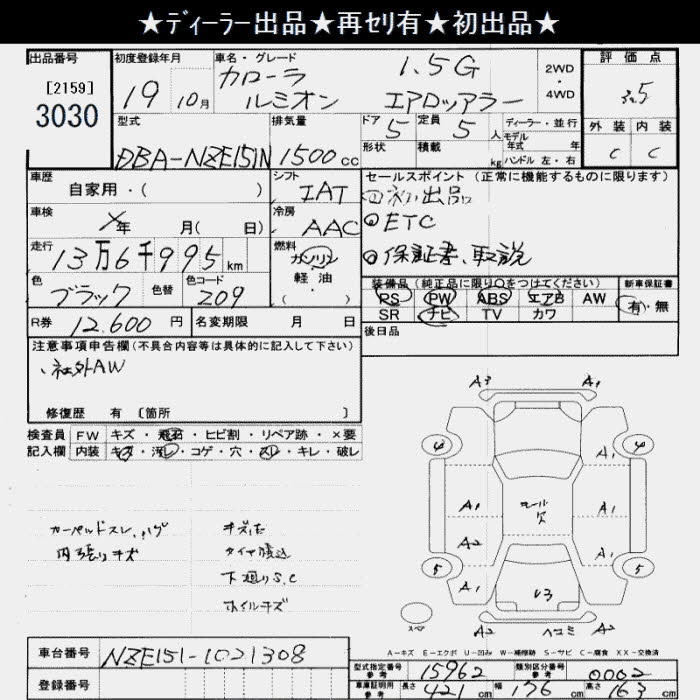 ★ディーラー出品★再セリ有★初出品★
出品番号
[2159]
3030
初度登録年月
19 10月
車名・グレード
カローラ 1.5G
ルミオン エアロツアラー
2WD
・
4WD
評価点
3.5
外装 内装
C C
型式
DBA-NZE151N
排気量
1500cc
ドア 5
定員 5人
形状
積載 kg
ディーラー・並行
モデル年式 年
ハンドル 左・右
車歴
自家用・( )
シフト
IAT
セールスポイント (正常に機能するものに限ります)
初出品
ETC
保証書、取説
車検
X年 月( 日)
冷房
AAC
走行
13万6千995km
燃料
ガソリン
軽油
( ・ )
色
ブラック
色替
色コード
209
装備品(純正品に限り○をつけてください)
新車保証書
PS PW ABS エアB AW
SR ナビ TV カワ
有・無
R券 12,600円
名変期限 月 日
後日品
注意事項申告欄(不具合内容等は具体的に記入して下さい)
、社外AW
修復歴 有 [箇所 ]
検査員
記入欄
FW キズ・飛石・ヒビ割・リペア跡・×要
内装 キズ・汚レ・コゲ・穴・スレ・キレ・破レ
カーペットスレ、ハゲ
内張りキズ
タイヤ積込
下廻りS.C
ホイルキズ
A3 A1
4 4
A1
A1 モール欠 A1
A2
5 5
A1 U3 A1
スペア
A2 ヘコミ A2
A－キズ E－エクボ U－凹み W－補修跡 S－サビ C－腐食 XX－交換済
車台番号
NZE151-1021308
登録番号
型式指定番号
参考
15962
類別区分番号
参考
0002
車庫証明用
参考
長さ 421cm
幅 176cm
高さ 163cm